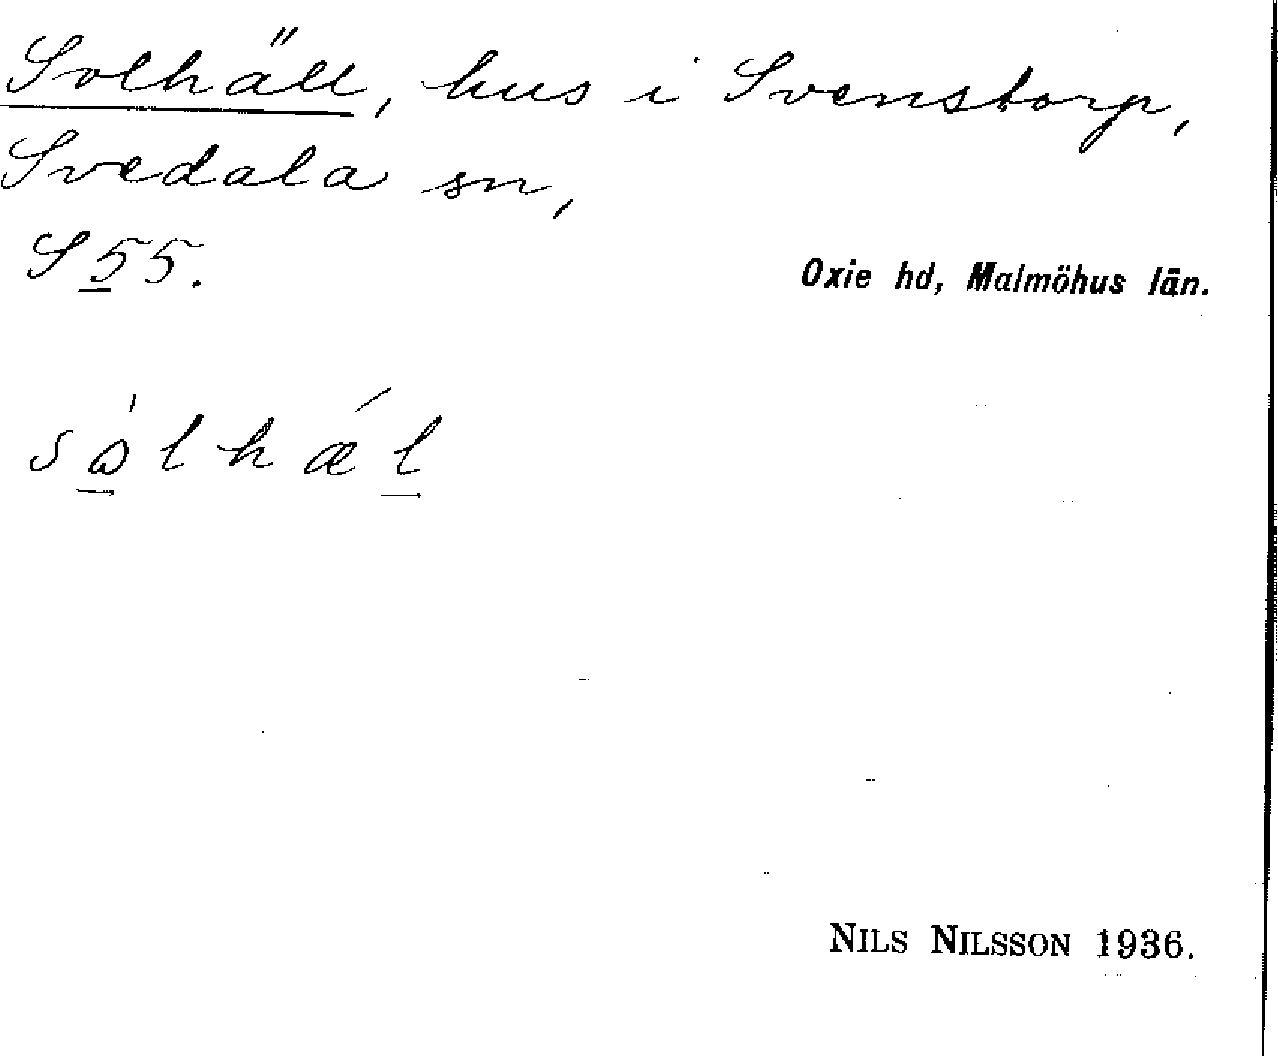 Solhäll, hus i Svenstorp,
Svedala sn,
S 55.
Oxie hd, Malmöhus län.
sωlhæ´l
NILS NILSSON 1936.